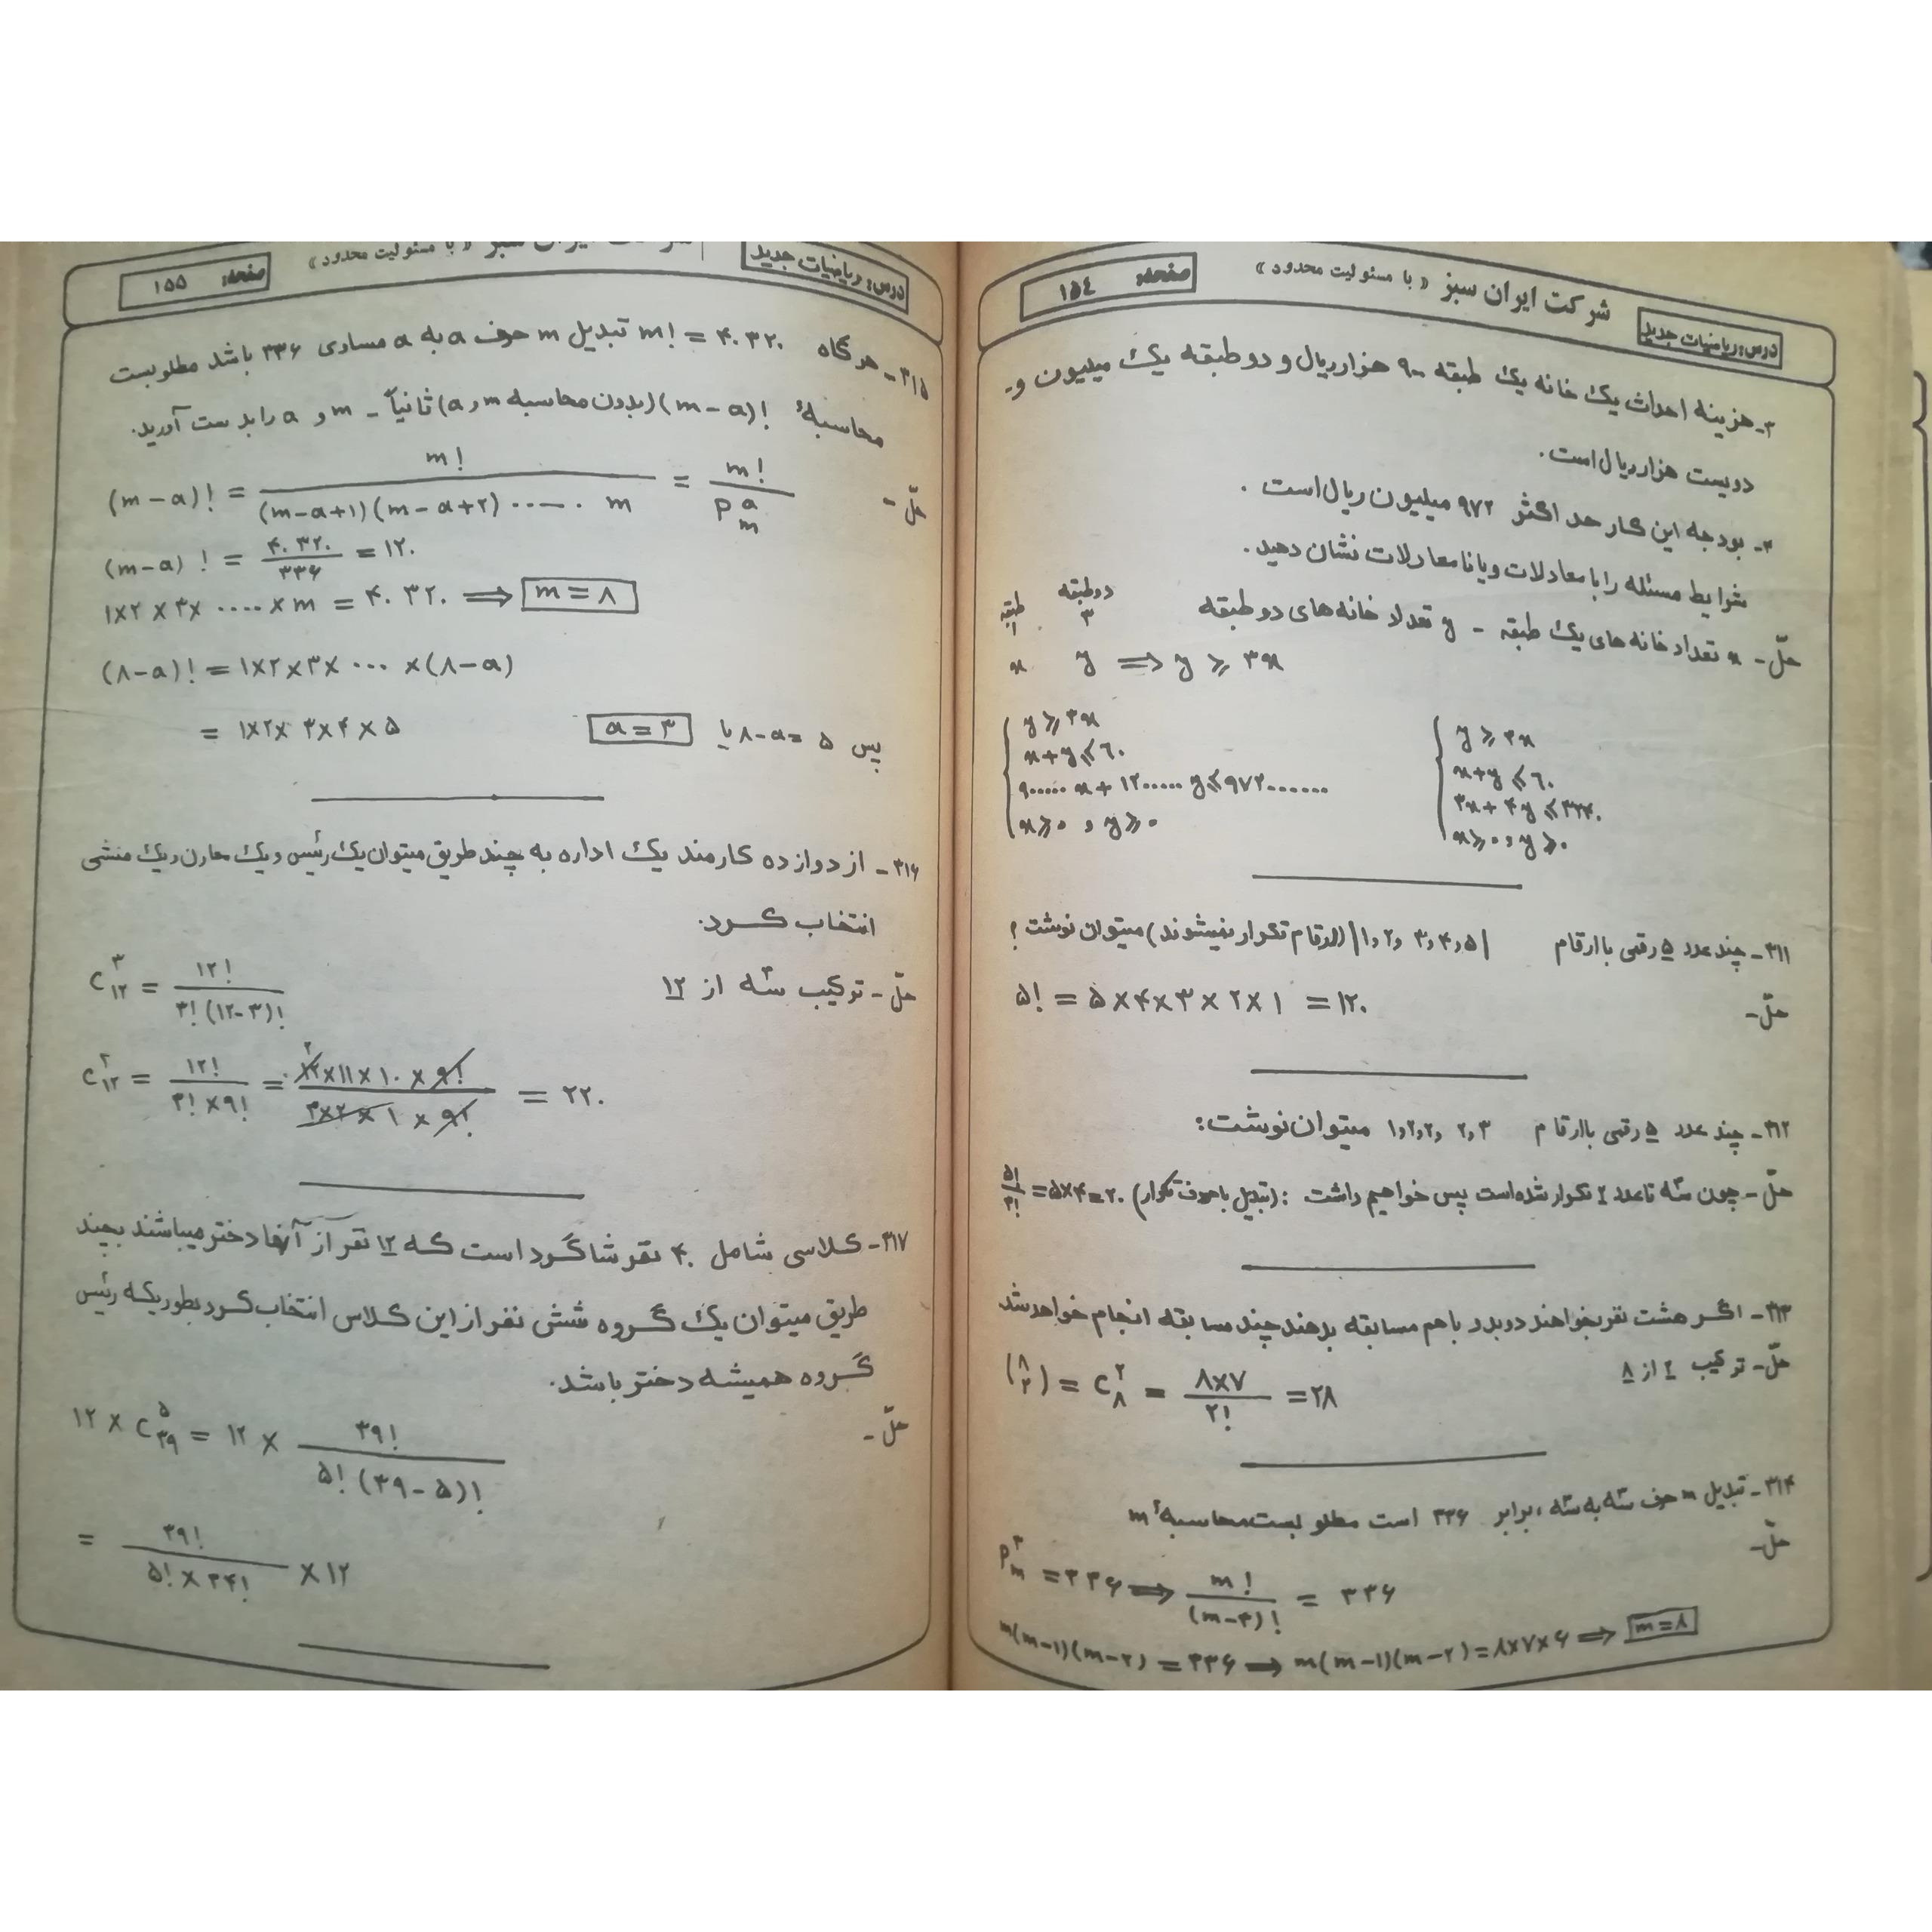 درس: ریاضیات جدید
شرکت ایران سبز « با مسئولیت محدود »
صفحه: ۱۵٤
۳- هزینه احداث یک خانه یک طبقه ۹۰۰ هزار ریال و دو طبقه یک میلیون و
دویست هزار ریال است.
۴- بودجه این کار حد اکثر ۹۷۲ میلیون ریال است.
شرایط مسئله را با معادلات و یا نامعادلات نشان دهید.
حلّ- x تعداد خانه های یک طبقه - y تعداد خانه های دو طبقه
دوطبقه ۳ طبقه ۱
x y ⟹ y ⩾ ۳x
y ⩾ ۳x
x+y ⩽ ٦۰
۹۰۰۰۰۰ x + ۱۲۰۰۰۰۰ y ⩽ ۹۷۲۰۰۰۰۰۰
x ⩾ ۰ , y ⩾ ۰
y ⩾ ۳x
x+y ⩽ ٦۰
۳x + ۴y ⩽ ۳۲۴۰
x ⩾ ۰ , y ⩾ ۰
۳۱۱- چند عدد ۵ رقمی با ارقام |۱,۲, ۳,۴,۵| (ارقام تکرار نمیشوند) میتوان نوشت ؟
حلّ- ۵! = ۵ × ۴ × ۳ × ۲ × ۱ = ۱۲۰
۳۱۲- چند عدد ۵ رقمی با ارقام ۱,۲,۲, ۲,۳ میتوان نوشت:
حلّ- چون سه تا عدد ۲ تکرار شده است پس خواهیم داشت : (تبدیل با حروف تکرار) ۵!/۳! = ۵×۴ = ۲۰
۳۱۳- اگر هشت نفر بخواهند دوبدو با هم مسابقه بدهند چند مسابقه انجام خواهد شد
حلّ- ترکیب ۲ از ۸
(۸ ۲) = C۸^۲ = ۸×۷ / ۲! = ۲۸
۳۱۴- تبدیل m حرف سه به سه ، برابر ۳۳۶ است مطلوبست محاسبهٔ m
حلّ-
Pm^۳ = ۳۳۶ ⟹ m! / (m-۳)! = ۳۳۶
m(m-۱)(m-۲) = ۳۳۶ ⟹ m(m-۱)(m-۲) = ۸×۷×۶ ⟹ m=۸
درس: ریاضیات جدید
سبز « با مسئولیت محدود »
صفحه: ۱۵۵
۳۱۵- هرگاه m! = ۴۰۳۲۰ تبدیل m حرف a به a مساوی ۳۳۶ باشد مطلوبست
محاسبهٔ (m-a)! (بدون محاسبه m و a) ثانیاً - m و a را بدست آورید.
حلّ-
(m-a)! = m! / (m-a+۱)(m-a+۲) ...... m = m! / Pm^a
(m-a)! = ۴۰۳۲۰ / ۳۳۶ = ۱۲۰
۱×۲×۳× .... ×m = ۴۰۳۲۰ ⟹ m=۸
(۸-a)! = ۱×۲×۳× ... ×(۸-a)
= ۱×۲×۳×۴×۵
پس ۸-a=۵ یا a=۳
۳۱۶- از دوازده کارمند یک اداره به چند طریق میتوان یک رئیس و یک معاون و یک منشی
انتخاب کرد.
حلّ- ترکیب سه از ۱۲
C۱۲^۳ = ۱۲! / ۳!(۱۲-۳)!
C۱۲^۲ = ۱۲! / ۳!×۹! = ۱۲×۱۱×۱۰×۹! / ۳×۲×۱×۹! = ۲۲۰
۳۱۷- کلاسی شامل ۴۰ نفر شاگرد است که ۱۲ نفر از آنها دختر میباشند بچند
طریق میتوان یک گروه شش نفر از این کلاس انتخاب کرد بطوریکه رئیس
گروه همیشه دختر باشد.
حلّ-
۱۲ × C۳۹^۵ = ۱۲ × ۳۹! / ۵!(۳۹-۵)!
= ۳۹! / ۵!×۳۴! ×۱۲